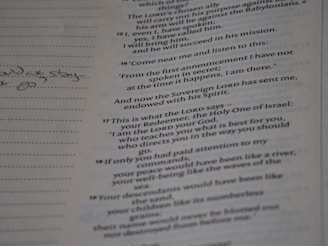 which of
things?
The LORD's chosen ally
will carry out his purpose against
his arm will be against the Babylonians.
15 I, even I, have spoken;
yes, I have called him.
I will bring him,
and he will succeed in his mission.
16 'Come near me and listen to this:
'From the first announcement I have not
spoken in secret;
at the time it happens, I am there.'
And now the Sovereign LORD has sent me,
endowed with his Spirit.
17 This is what the LORD says –
your Redeemer, the Holy One of Israel:
'I am the LORD your God,
who teaches you what is best for you,
who directs you in the way you should
go.
18 If only you had paid attention to my
commands,
your peace would have been like a river,
your well-being like the waves of the
sea.
19 Your descendants would have been
like the sand,
your children like its numberless
grains;
their name would never be blotted out
nor destroyed from before me.'
stay
go